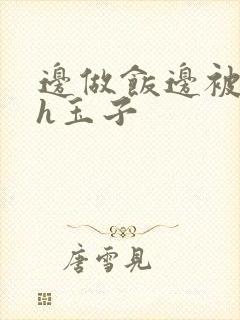 邊做飯邊被
h玉子
唐雪見